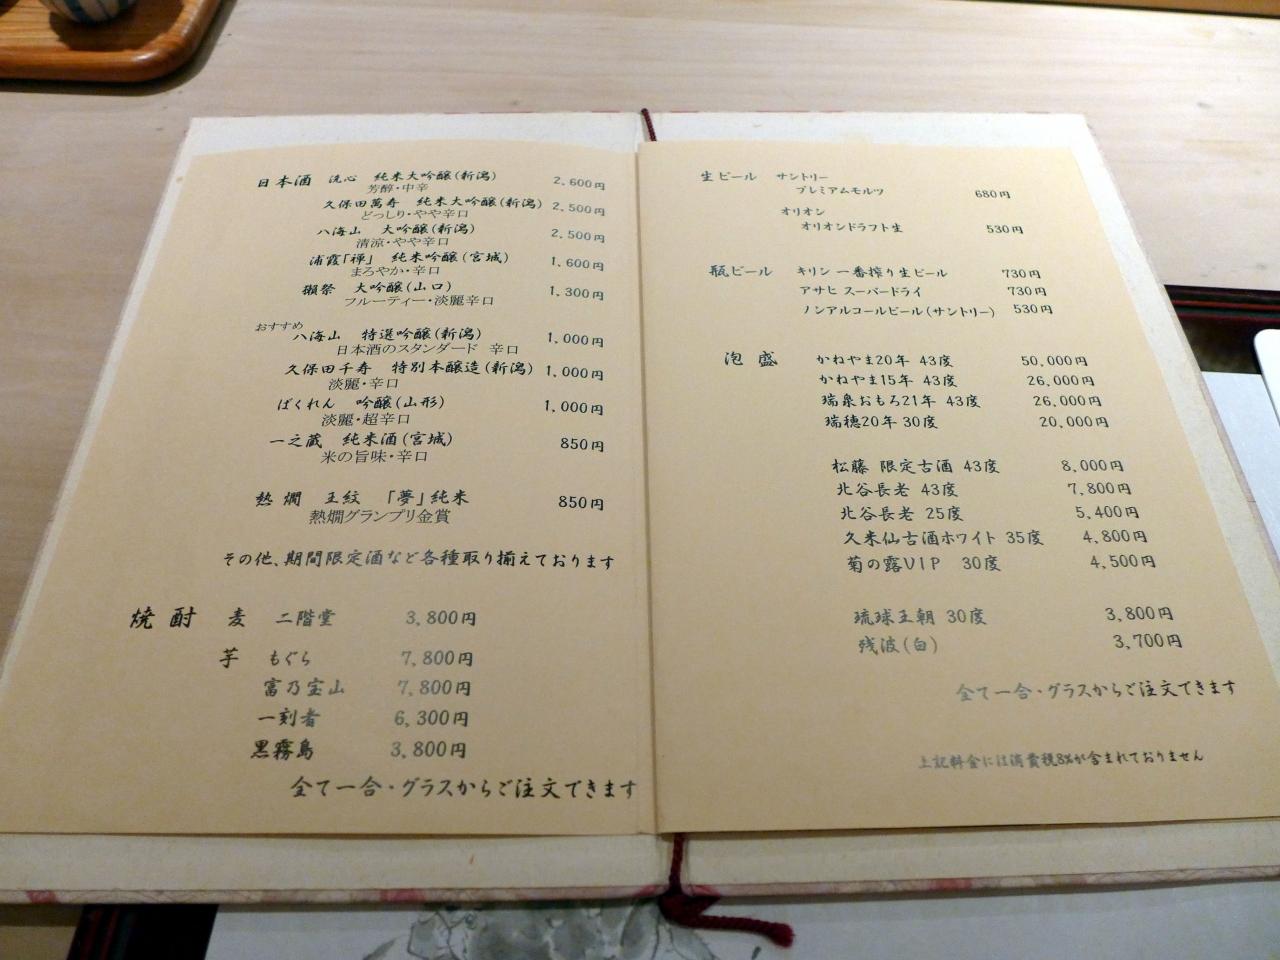 日本酒 洗心 純米大吟醸(新潟) 2,600円
芳醇・中辛
久保田萬寿 純米大吟醸(新潟) 2,500円
どっしり・やや辛口
八海山 大吟醸(新潟) 2,500円
清涼・やや辛口
浦霞「禅」 純米吟醸(宮城) 1,600円
まろやか・辛口
獺祭 大吟醸(山口) 1,300円
フルーティー・淡麗辛口
おすすめ
八海山 特選吟醸(新潟) 1,000円
日本酒のスタンダード 辛口
久保田千寿 特別本醸造(新潟) 1,000円
淡麗・辛口
ばくれん 吟醸(山形) 1,000円
淡麗・超辛口
一之蔵 純米酒(宮城) 850円
米の旨味・辛口
熱燗 王紋 「夢」純米 850円
熱燗グランプリ金賞
その他、期間限定酒など各種取り揃えております
焼酎 麦 二階堂 3,800円
芋 もぐら 7,800円
富乃宝山 7,800円
一刻者 6,300円
黒霧島 3,800円
全て一合・グラスからご注文できます
生ビール サントリー
プレミアムモルツ 680円
オリオン
オリオンドラフト生 530円
瓶ビール キリン 一番搾り生ビール 730円
アサヒ スーパードライ 730円
ノンアルコールビール(サントリー) 530円
泡盛 かねやま20年 43度 50,000円
かねやま15年 43度 26,000円
瑞泉おもろ21年 43度 26,000円
瑞穂20年 30度 20,000円
松藤 限定古酒 43度 8,000円
北谷長老 43度 7,800円
北谷長老 25度 5,400円
久米仙古酒ホワイト 35度 4,800円
菊の露VIP 30度 4,500円
琉球王朝 30度 3,800円
残波(白) 3,700円
全て一合・グラスからご注文できます
上記料金には消費税8%が含まれておりません